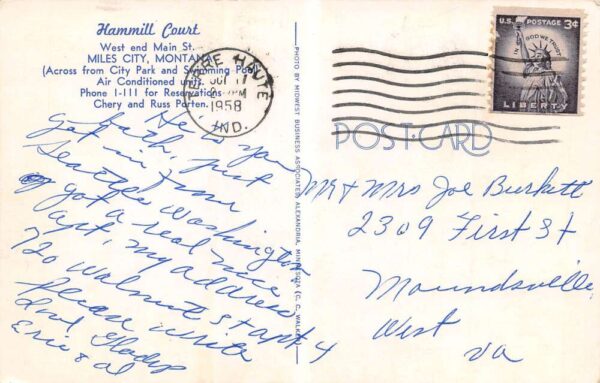 Hammill Court
West end Main St.
MILES CITY, MONTANA
(Across from City Park and Swimming Pool)
Air Conditioned units.
Phone 1-111 for Reservations
Chery and Russ Porten.
PHOTO BY MIDWEST BUSINESS ASSOCIATES, ALEXANDRIA, MINNESOTA (C. C. WALKER)
TERRE HAUTE
PM
1958
IND.
U.S. POSTAGE 3¢
IN GOD WE TRUST
LIBERTY
POST CARD
you
both, just
got in from
Seattle Washington
got a real nice
apt, my address
720 Walnut St apt 4
Please write
Gladys
Eric & al
Mr & Mrs Joe Burkett
2309 First St
Moundsville,
West
Va